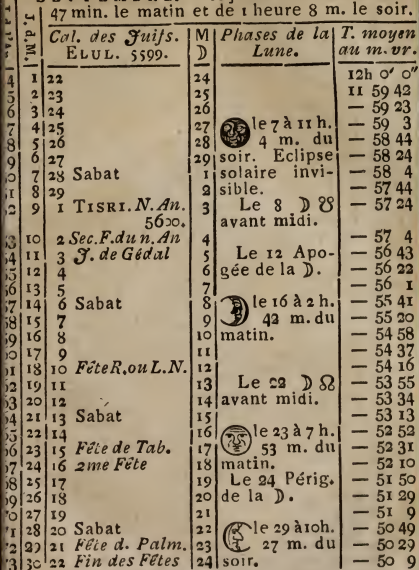 47 min. le matin et de 1 heure 8 m. le soir.
J.d.M. Cal. des Juifs. M Phases de la T. moyen
ELUL. 5599. ☽ Lune. au m. vr.
1 22 24 12h 0' 0"
2 23 25 11 59 42
3 24 26 — 59 23
4 25 27 le 7 à 11 h. — 59 3
5 26 28 4 m. du — 58 44
6 27 29 soir. Eclipse — 58 24
7 28 Sabat 1 solaire invi- — 58 4
8 29 2 sible. — 57 44
9 1 TISRI. N. An. 3 Le 8 ☽ ☋ — 57 24
5600. avant midi.
10 2 Sec. F. du n. An 4 — 57 4
11 3 J. de Gédal 5 Le 12 Apo- — 56 43
12 4 6 gée de la ☽. — 56 22
13 5 7 — 56 1
14 6 Sabat 8 le 16 à 2 h. — 55 41
15 7 9 42 m. du — 55 20
16 8 10 matin. — 54 58
17 9 11 — 54 37
18 10 Fête R. ou L. N. 12 — 54 16
19 11 13 Le 22 ☽ ☊ — 53 55
20 12 14 avant midi. — 53 34
21 13 Sabat 15 — 53 13
22 14 16 le 23 à 7 h. — 52 52
23 15 Fête de Tab. 17 53 m. du — 52 31
24 16 2me Fête 18 matin. — 52 10
25 17 19 Le 24 Périg. — 51 50
26 18 20 de la ☽. — 51 29
27 19 21 — 51 9
28 20 Sabat 22 le 29 à 10h. — 50 49
29 21 Fête d. Palm. 23 27 m. du — 50 29
30 22 Fin des Fêtes 24 soir. — 50 9